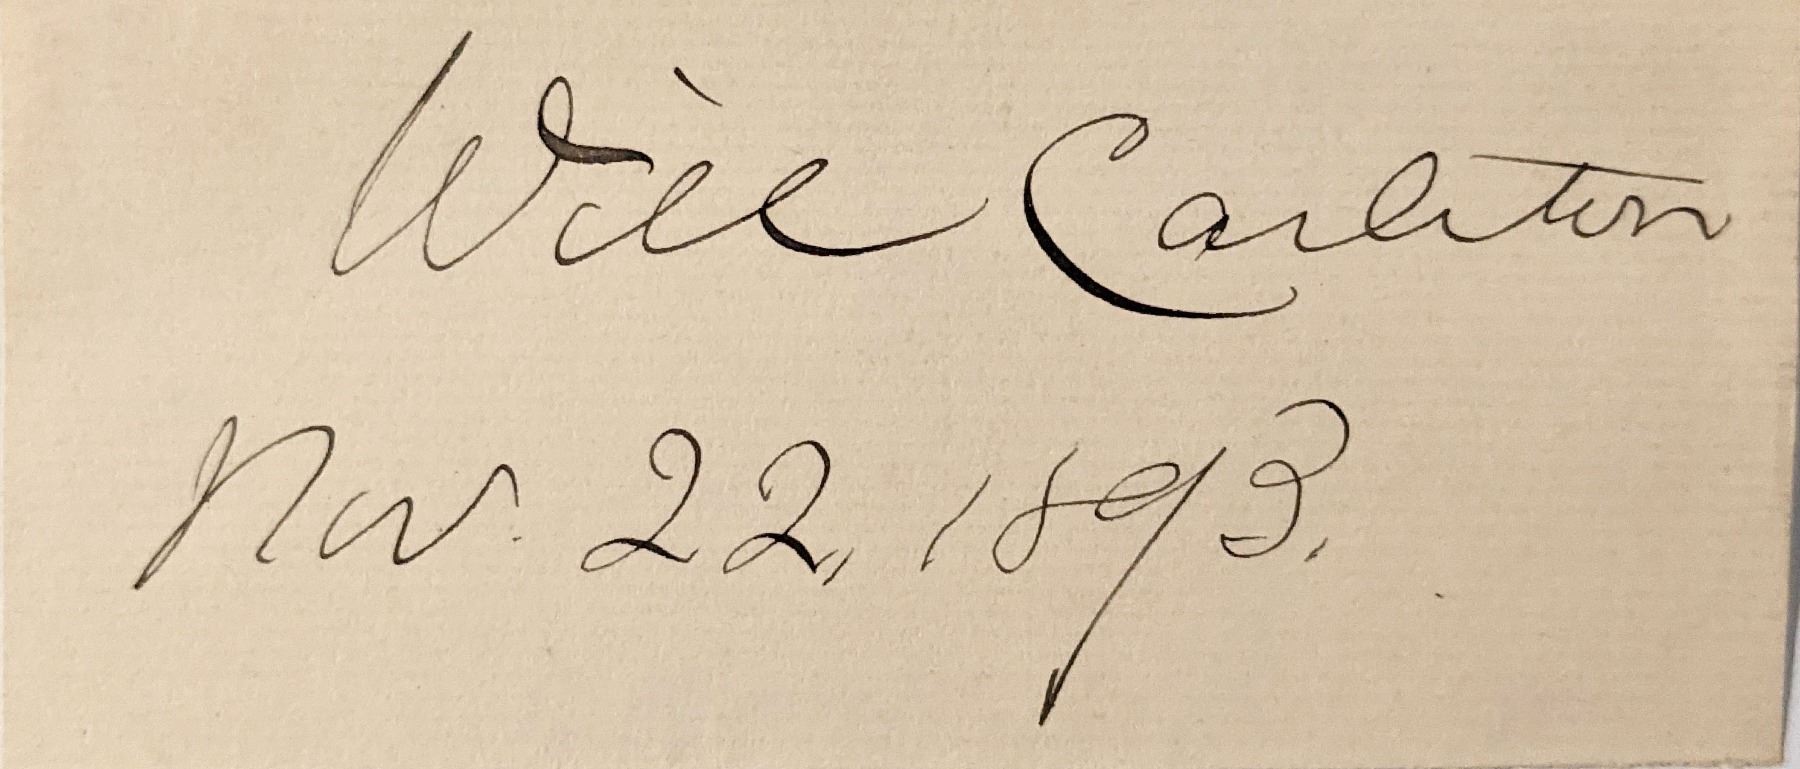 Will Carleton
Nov. 22, 1893.